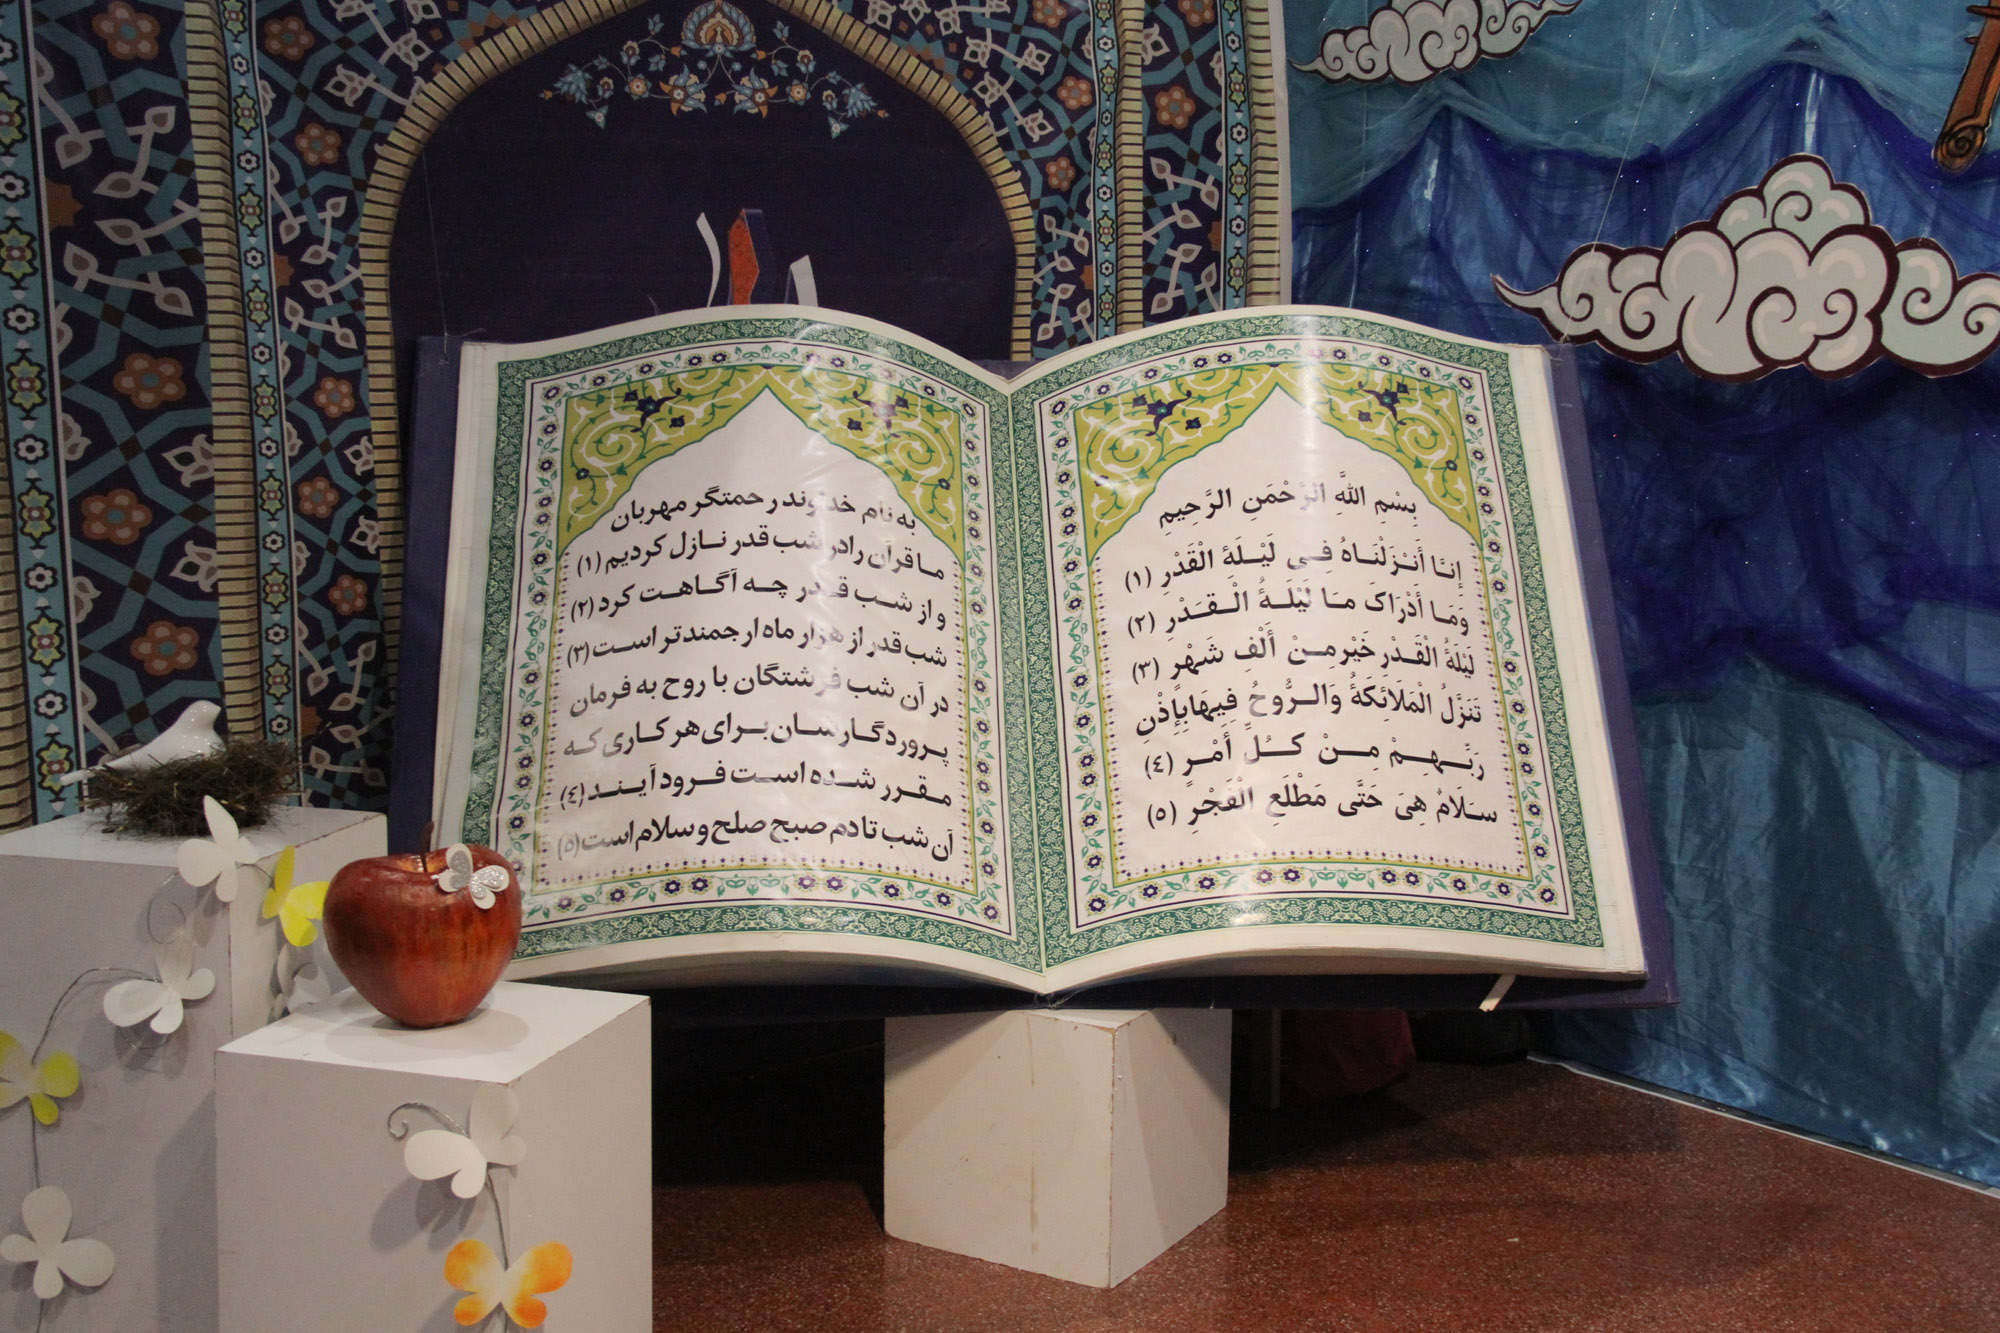 بِسْمِ اللَّهِ الرَّحْمَنِ الرَّحِيمِ
إِنَّا أَنْزَلْنَاهُ فِي لَيْلَةِ الْقَدْرِ (١)
وَمَا أَدْرَاكَ مَا لَيْلَةُ الْقَدْرِ (٢)
لَيْلَةُ الْقَدْرِ خَيْرٌ مِنْ أَلْفِ شَهْرٍ (٣)
تَنَزَّلُ الْمَلَائِكَةُ وَالرُّوحُ فِيهَا بِإِذْنِ
رَبِّهِمْ مِنْ كُلِّ أَمْرٍ (٤)
سَلَامٌ هِيَ حَتَّى مَطْلَعِ الْفَجْرِ (٥)
به نام خداوند رحمتگر مهربان
ما قرآن را در شب قدر نازل کردیم (١)
و از شب قدر چه آگاهت کرد (٢)
شب قدر از هزار ماه ارجمندتر است (٣)
در آن شب فرشتگان با روح به فرمان
پروردگارشان برای هر کاری که
مقرر شده است فرود آیند (٤)
آن شب تا دم صبح صلح و سلام است (٥)